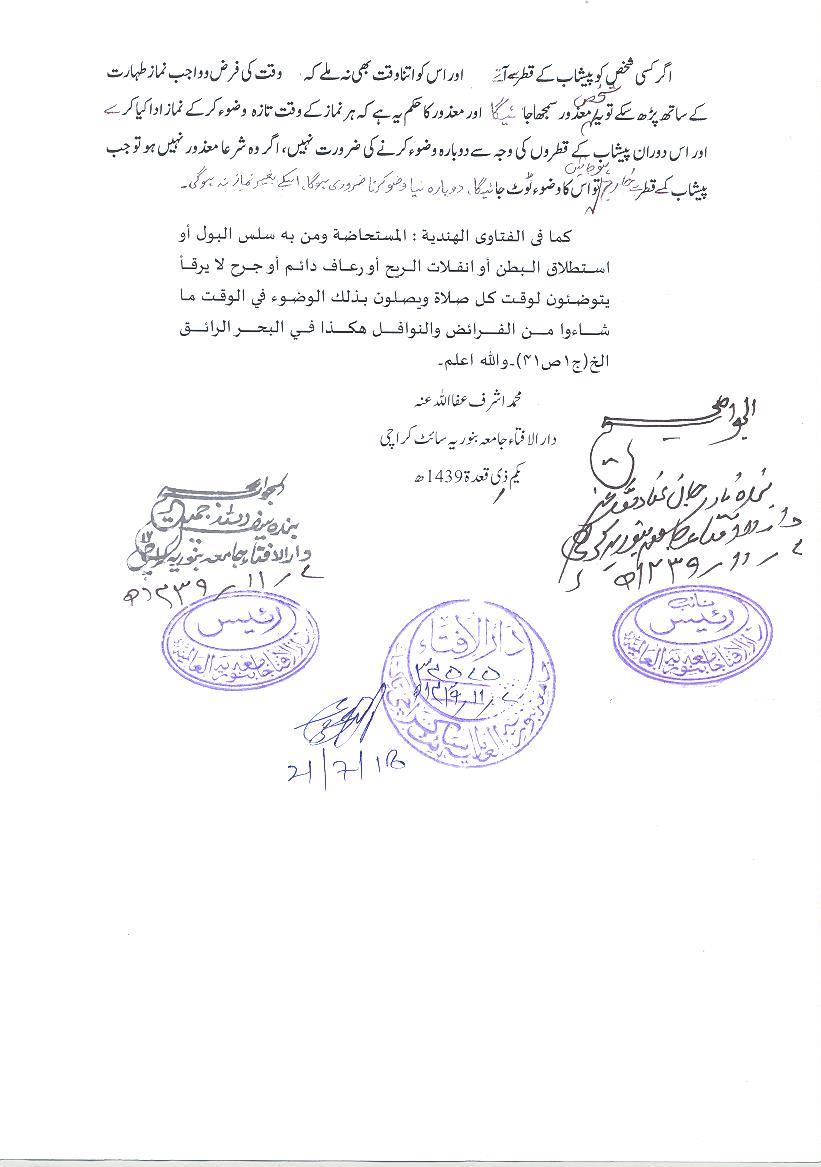 اگر کسی شخص کو پیشاب کے قطرے آتے اور اس کو اتنا وقت بھی نہ ملے کہ وقت کی فرض وواجب نماز طہارت
کے ساتھ پڑھ سکے تو یہ شخص معذور سمجھا جائیگا اور معذور کا حکم یہ ہے کہ ہر نماز کے وقت تازہ وضوء کر کے نماز ادا کیا کرے
اور اس دوران پیشاب کے قطروں کی وجہ سے دوبارہ وضوء کرنے کی ضرورت نہیں، اگر وہ شرعا معذور نہیں ہو تو جب
پیشاب کے قطرے خارج ہو جائیں تو اس کا وضوء ٹوٹ جائیگا، دوبارہ نیا وضو کرنا ضروری ہوگا، اسکے بغیر نماز نہ ہوگی۔
كما فى الفتاوى الهندية : المستحاضة ومن به سلس البول أو
استطلاق البطن أو انفلات الريح أو رعاف دائم أو جرح لا يرقأ
يتوضئون لوقت كل صلاة ويصلون بذلك الوضوء في الوقت ما
شاءوا من الفرائض والنوافل هكذا في البحر الرائق
الخ(ج۱ص۴۱)۔والله اعلم۔
محمد اشرف عفا اللہ عنہ
دار الافتاء جامعہ بنوریہ سائٹ کراچی
یکم ذی قعدة 1439ھ
الجواب صحیح
دار الافتاء جامعہ بنوریہ کراچی
۲/۱۱/۱۴۳۹ھ
الجواب صحیح
دار الافتاء جامعہ بنوریہ کراچی
۲/۱۱/۱۴۳۹ھ
رئیس
دار الافتاء جامعہ بنوریہ العالمیہ
دار الافتاء
۲/۱۱/۱۴۳۹ھ
نائب
رئیس
دار الافتاء جامعہ بنوریہ العالمیہ
21/7/18